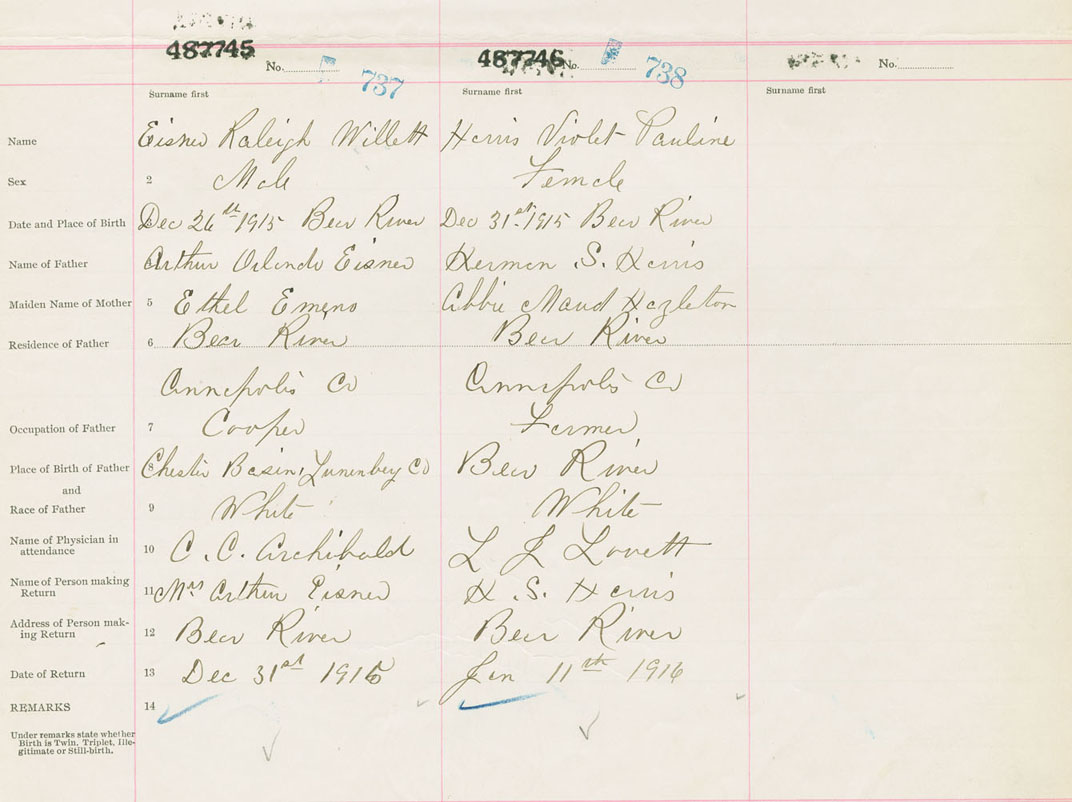 487745 487746
No. 737 No. 738 No.
Surname first Surname first Surname first
Name Eisner Raleigh Willett Harris Violet Pauline
Sex 2 Male Female
Date and Place of Birth Dec 26th 1915 Bear River Dec 31st 1915 Bear River
Name of Father Arthur Orlando Eisner Herman S. Harris
Maiden Name of Mother 5 Ethel Emeno Abbie Maud Hazleton
Residence of Father 6 Bear River Bear River
Annapolis Co Annapolis Co
Occupation of Father 7 Cooper Farmer
Place of Birth of Father 8 Chester Basin, Lunenburg Co Bear River
and
Race of Father 9 White White
Name of Physician in
attendance 10 C. C. Archibald L J Lovett
Name of Person making
Return 11 Mrs Arthur Eisner H. S. Harris
Address of Person mak-
ing Return 12 Bear River Bear River
Date of Return 13 Dec 31st 1915 Jan 11th 1916
REMARKS 14
Under remarks state whether
Birth is Twin, Triplet, Ille-
gitimate or Still-birth.